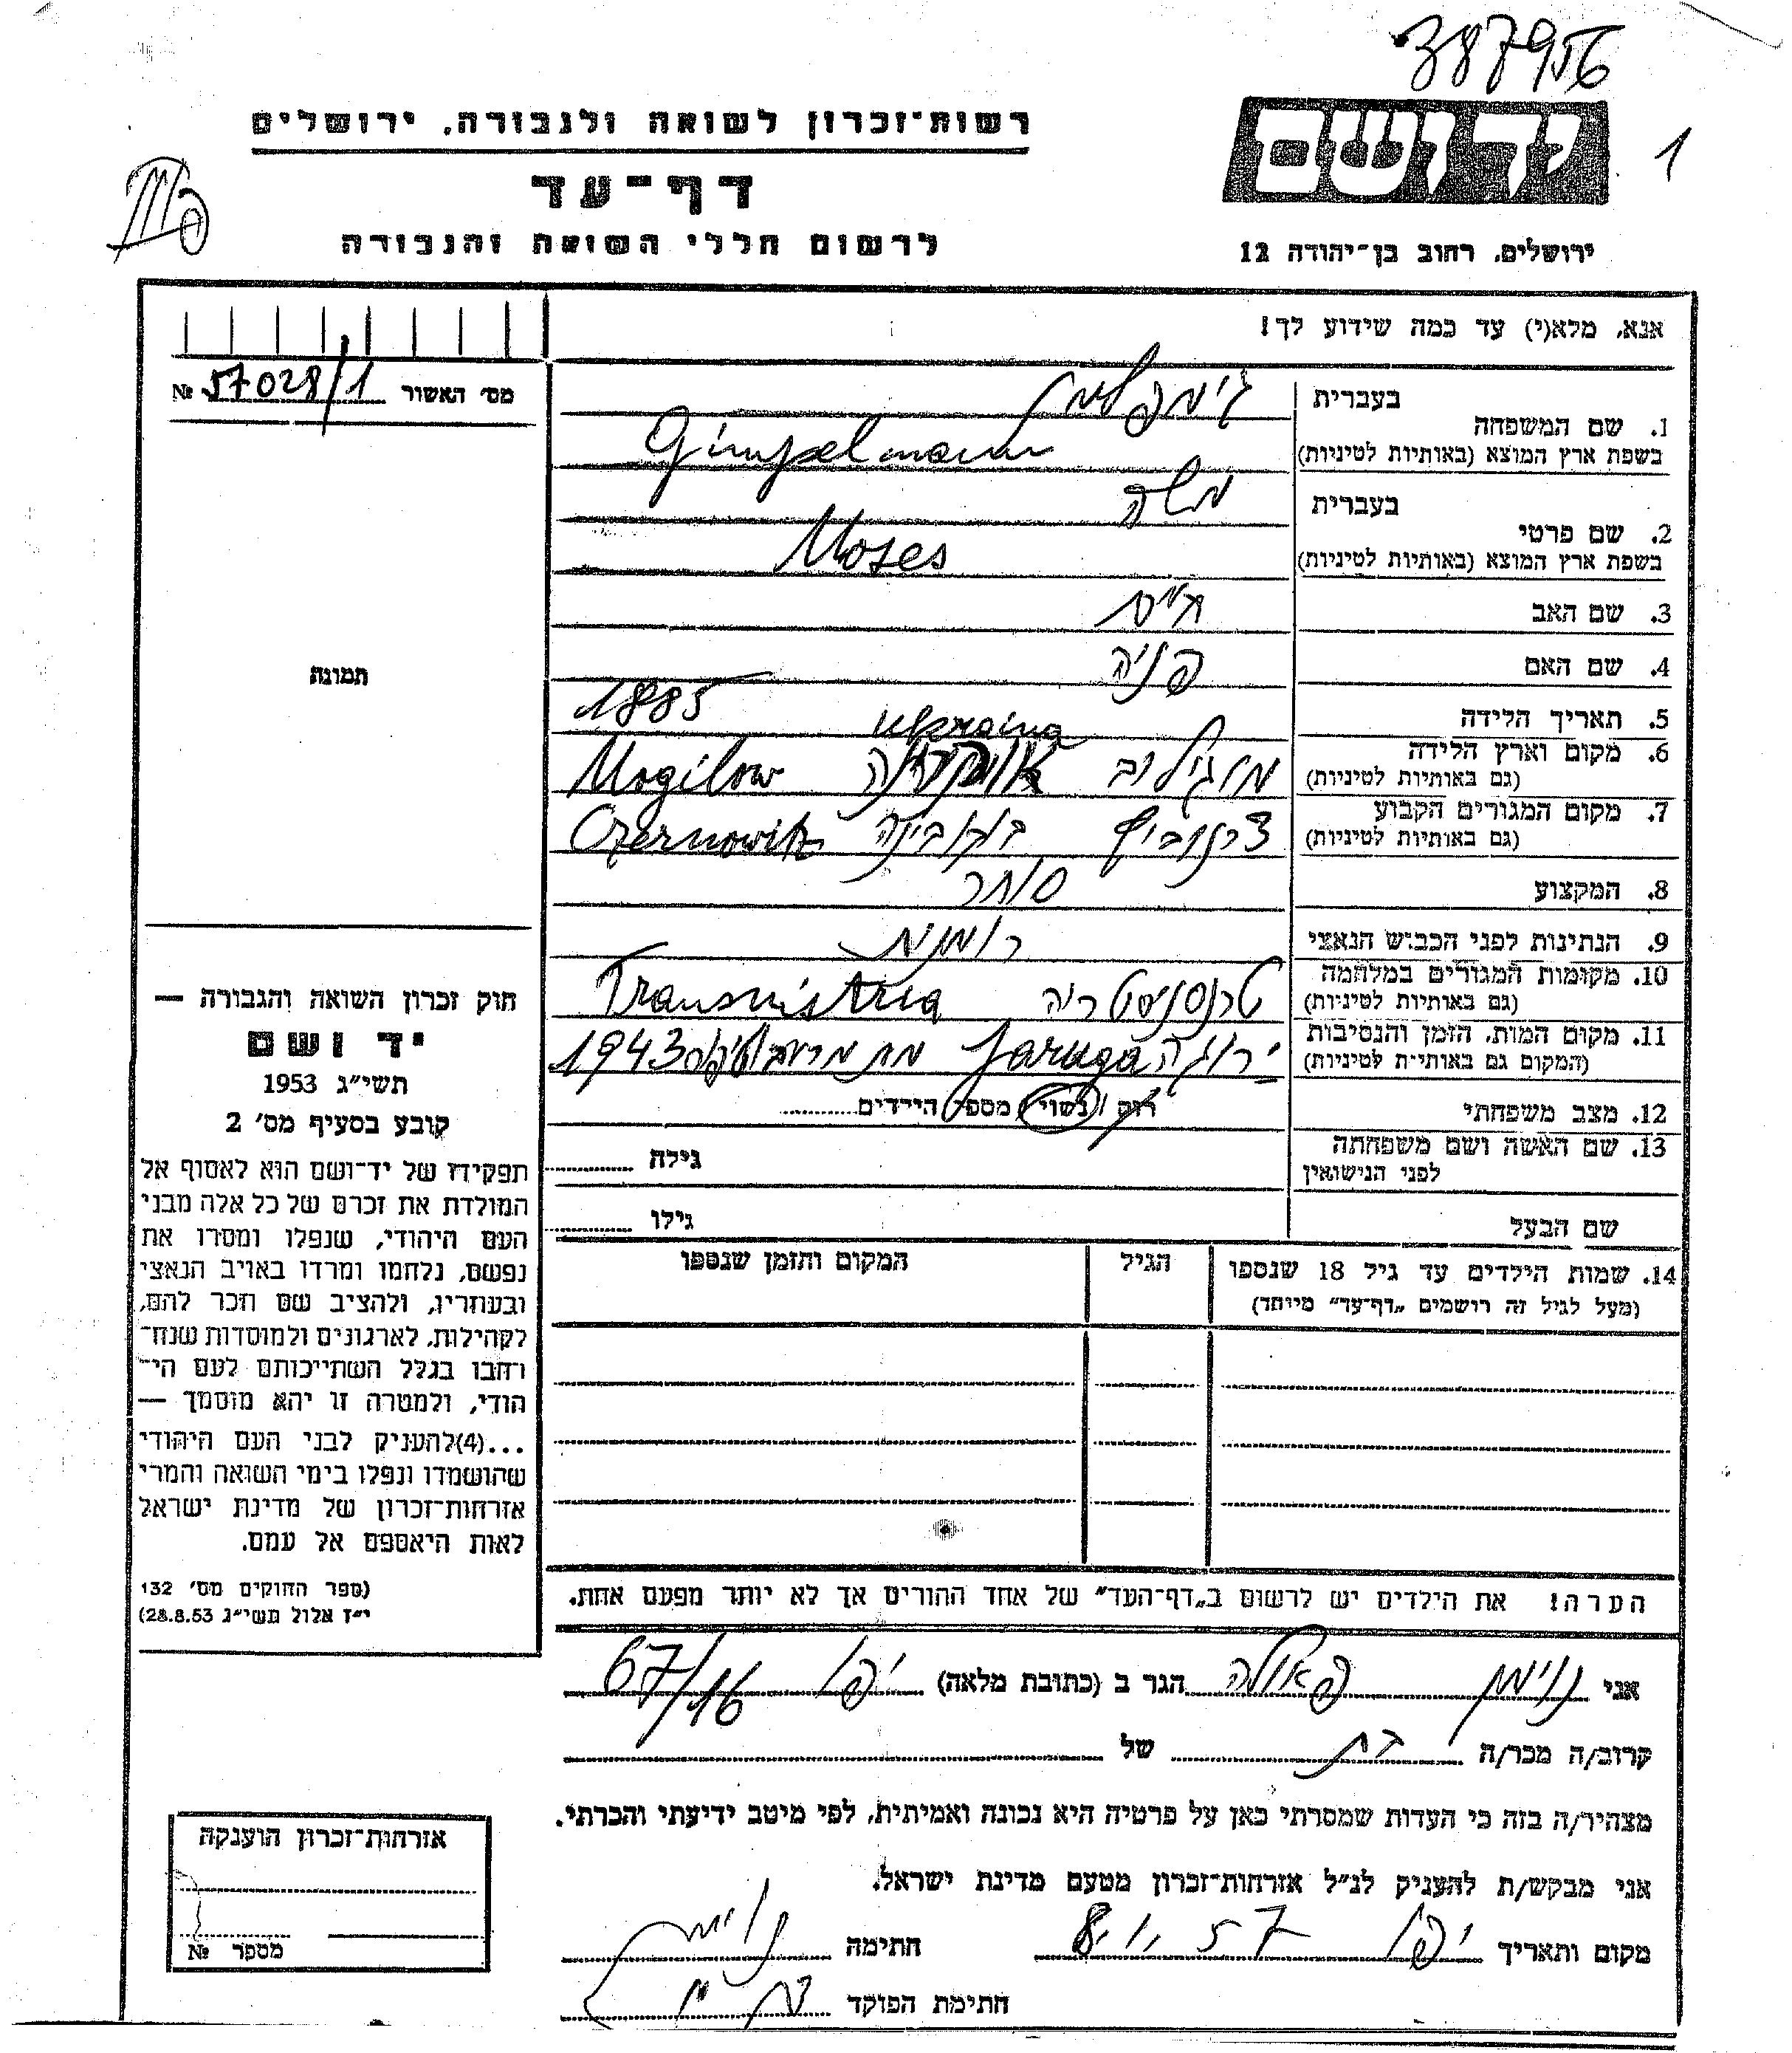 387956
רשות־זכרון לשואה ולגבורה, ירושלים
יד ושם
1
דף־עד
לרשום חללי השואה והגבורה
ירושלים, רחוב בן־יהודה 12
אנא, מלא(י) עד כמה שידוע לך!
מס' האשור 57028/1 №
בעברית גימפלמן
1. שם המשפחה
בשפת ארץ המוצא (באותיות לטיניות) Gimpelmann
בעברית משה
2. שם פרטי
בשפת ארץ המוצא (באותיות לטיניות) Moses
3. שם האב חיים
4. שם האם פניה
תמונה
5. תאריך הלידה 1885
6. מקום וארץ הלידה מוגילוב אוקרינה Ukraina Mogilow
(גם באותיות לטיניות)
7. מקום המגורים הקבוע צרנוביץ בוקובינה Czernowitz
(גם באותיות לטיניות)
8. המקצוע סוחר
9. הנתינות לפני הכבוש הנאצי רומנית
10. מקומות המגורים במלחמה טרנסניסטריה Transnistria
(גם באותיות לטיניות)
11. מקום המות, הזמן והנסיבות ירוגה Jaruga מת מרעב 1943
(המקום גם באותיות לטיניות)
12. מצב משפחתי רווק / נשוי / מספר הילדים
13. שם האשה ושם משפחתה גילה
לפני הנישואין
שם הבעל גילו
14. שמות הילדים עד גיל 18 שנספו הגיל המקום והזמן שנספו
(מעל לגיל זה רושמים „דף־עד" מיוחד)
חוק זכרון השואה והגבורה —
יד ושם
תשי"ג 1953
קובע בסעיף מס' 2
תפקידו של יד־ושם הוא לאסוף אל
המולדת את זכרם של כל אלה מבני
העם היהודי, שנפלו ומסרו את
נפשם, נלחמו ומרדו באויב הנאצי
ובעוזריו, ולהציב שם וזכר להם,
לקהילות, לארגונים ולמוסדות שנח־
רחבו בגלל השתייכותם לעם הי־
הודי, ולמטרה זו יהא מוסמך —
...(4) להעניק לבני העם היהודי
שהושמדו ונפלו בימי השואה והמרי
אזרחות־זכרון של מדינת ישראל
לאות היאספם אל עמם.
(ספר החוקים מס' 132
י"ז אלול תשי"ג 28.8.53)
הערה! את הילדים יש לרשום ב„דף־העד" של אחד ההורים אך לא יותר מפעם אחת.
אני נוימן פאולה הגר ב (כתובת מלאה) יפו 67/16
קרוב/ה מכר/ה בת של
מצהיר/ה בזה כי העדות שמסרתי כאן על פרטיה היא נכונה ואמיתית, לפי מיטב ידיעתי והכרתי.
אני מבקש/ת להעניק לנ"ל אזרחות־זכרון מטעם מדינת ישראל.
מקום ותאריך יפו 57 חתימה נוימן
חתימת הפוקד
אזרחות־זכרון הוענקה
מספר №